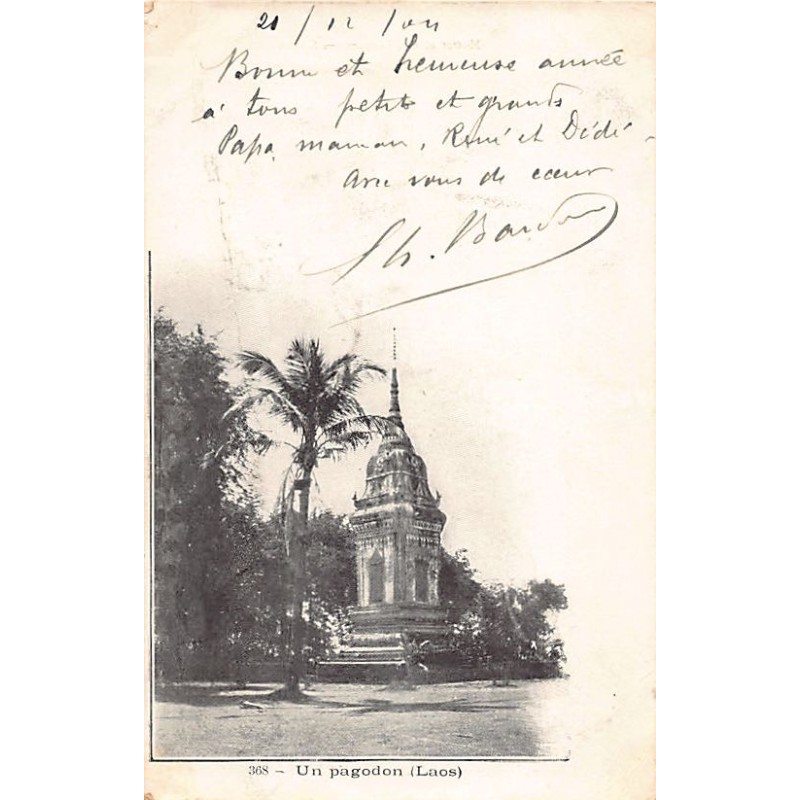 21/12/04
Bonne et heureuse année
à tous petits et grands
Papa, maman, René et Dédé -
Avec vous de cœur
Ch.
368 – Un pagodon (Laos)